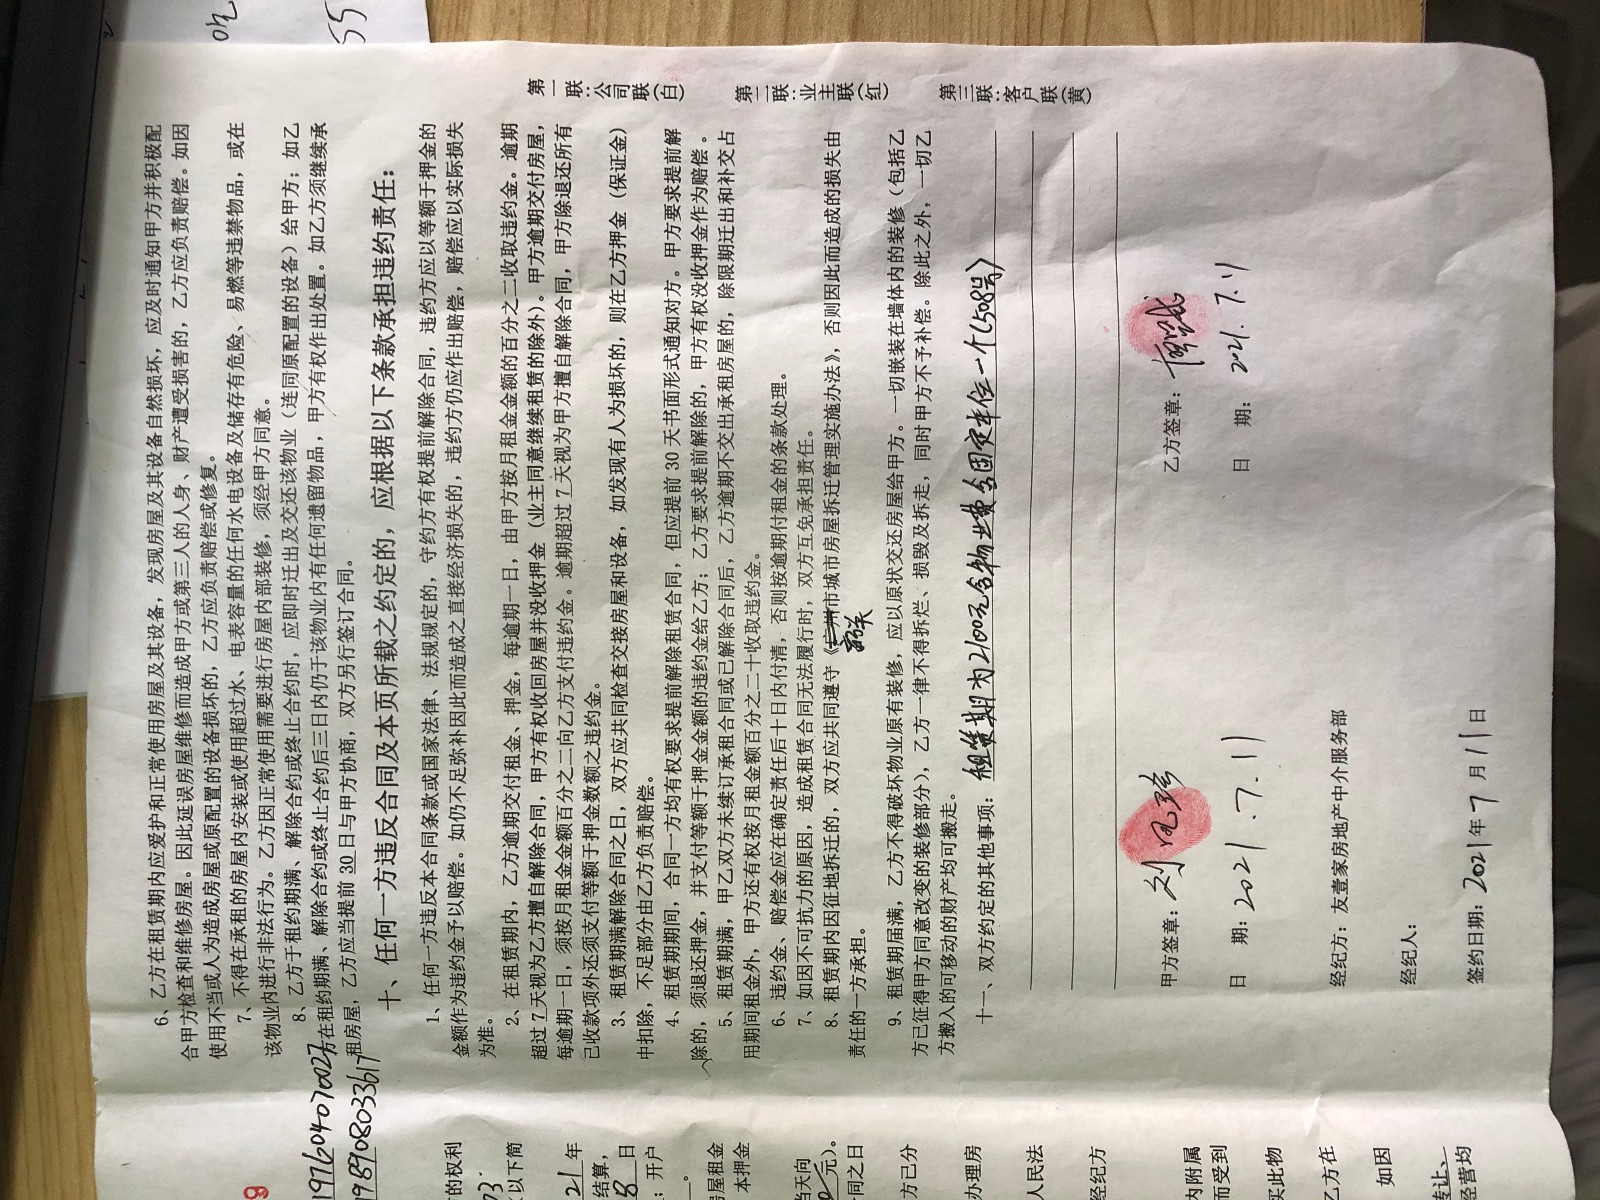 6、乙方在租赁期内应爱护和正常使用房屋及其设备，发现房屋及其设备自然损坏，应及时通知甲方并积极配
合甲方检查和维修房屋。因此延误房屋维修而造成甲方或第三人的人身、财产遭受损害的，乙方应负责赔偿。如因
使用不当或人为造成房屋或原配置的设备损坏的，乙方应负责赔偿或修复。
7、不得在承租的房屋内安装或使用超过水、电表容量的任何水电设备及储存有危险、易燃等违禁物品，或在
该物业内进行非法行为。乙方因正常使用需要进行房屋内部装修，须经甲方同意。
8、乙方于租约期满、解除合约或终止合约时，应即时迁出及交还该物业（连同原配置的设备）给甲方；如乙
方在租约期满、解除合约或终止合约后三日内仍于该物业内有任何遗留物品，甲方有权作出处置。如乙方须继续承
租房屋，乙方应当提前30日与甲方协商，双方另行签订合同。
十、任何一方违反合同及本页所载之约定的，应根据以下条款承担违约责任：
1、任何一方违反本合同条款或国家法律、法规规定的，守约方有权提前解除合同，违约方应以等额于押金的
金额作为违约金予以赔偿。如仍不足弥补因此而造成之直接经济损失的，违约方仍应作出赔偿，赔偿应以实际损失
为准。
2、在租赁期内，乙方逾期交付租金、押金，每逾期一日，由甲方按月租金金额的百分之二收取违约金。逾期
超过7天视为乙方擅自解除合同，甲方有权收回房屋并没收押金（业主同意继续租赁的除外）。甲方逾期交付房屋，
每逾期一日，须按月租金金额百分之二向乙方支付违约金。逾期超过7天视为甲方擅自解除合同，甲方除退还所有
已收款项外还须支付等额于押金数额之违约金。
3、租赁期满解除合同之日，双方应共同检查交接房屋和设备，如发现有人为损坏的，则在乙方押金（保证金）
中扣除，不足部分由乙方负责赔偿。
4、租赁期期间，合同一方均有权要求提前解除租赁合同，但应提前30天书面形式通知对方。甲方要求提前解
除的，须退还押金，并支付等额于押金金额的违约金给乙方；乙方要求提前解除的，甲方有权没收押金作为赔偿。
5、租赁期满，甲乙双方未续订承租合同或已解除合同后，乙方逾期不交出承租房屋的，除限期迁出和补交占
用期间租金外，甲方还有权按月租金额百分之二十收取违约金。
6、违约金、赔偿金应在确定责任后十日内付清，否则按逾期付租金的条款处理。
7、如因不可抗力的原因，造成租赁合同无法履行时，双方互免承担责任。
8、租赁期内因征地拆迁的，双方应共同遵守《广州市城市房屋拆迁管理实施办法》，否则因此而造成的损失由
责任的一方承担。
9、租赁期届满，乙方不得破坏物业原有装修，应以原状交还房屋给甲方。一切嵌装在墙体内的装修（包括乙
方已征得甲方同意改变的装修部分），乙方一律不得拆烂、损毁及拆走，同时甲方不予补偿。除此之外，一切乙
方搬入的可移动的财产均可搬走。
十一、双方约定的其他事项：租赁期为2100元含物业费含固定车位一个（508号）
甲方签章：
日 期：2021.7.11
乙方签章：
日 期：2021.7.11
经纪方：友壹家房地产中介服务部
经纪人：
签约日期：2021年7月11日
第一联：公司联（白）
第二联：业主联（红）
第三联：客户联（黄）
197604070027
198908033617
的权利
以下简
21年
结算，
8日
；开户
房屋租金
本押金
当天向
元）。
同之日
方已分
办理房
人民法
经纪方
内附属
而受到
买此物
乙方在
如因
转让、
经营均
55